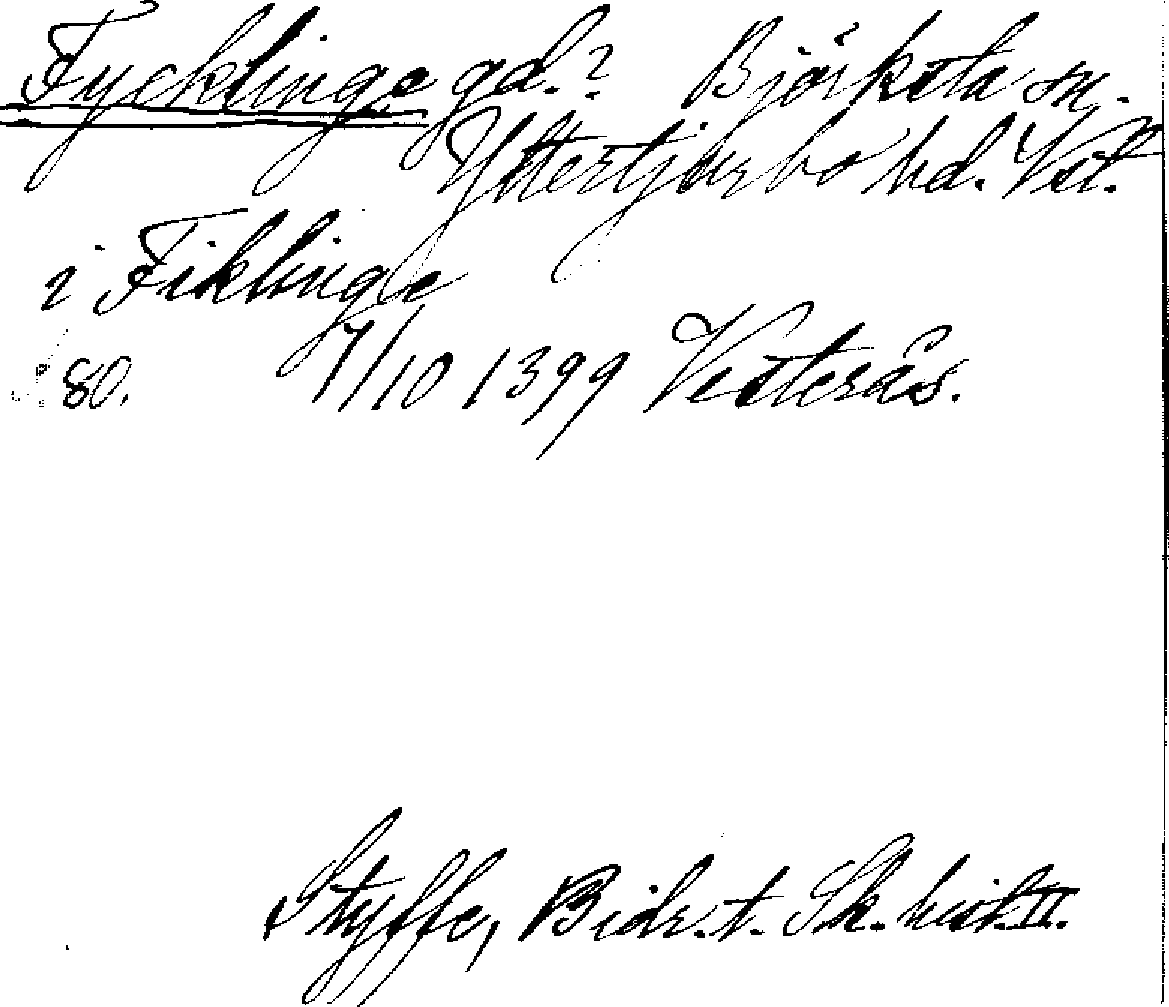 Fycklinge gd.? Björksta sn.
Yttertjurbo hd. Vstm.
i Fiklinge
80. 7/10 1399 Vesterås.
Styffe, Bidr. t. Sk. hist. II.